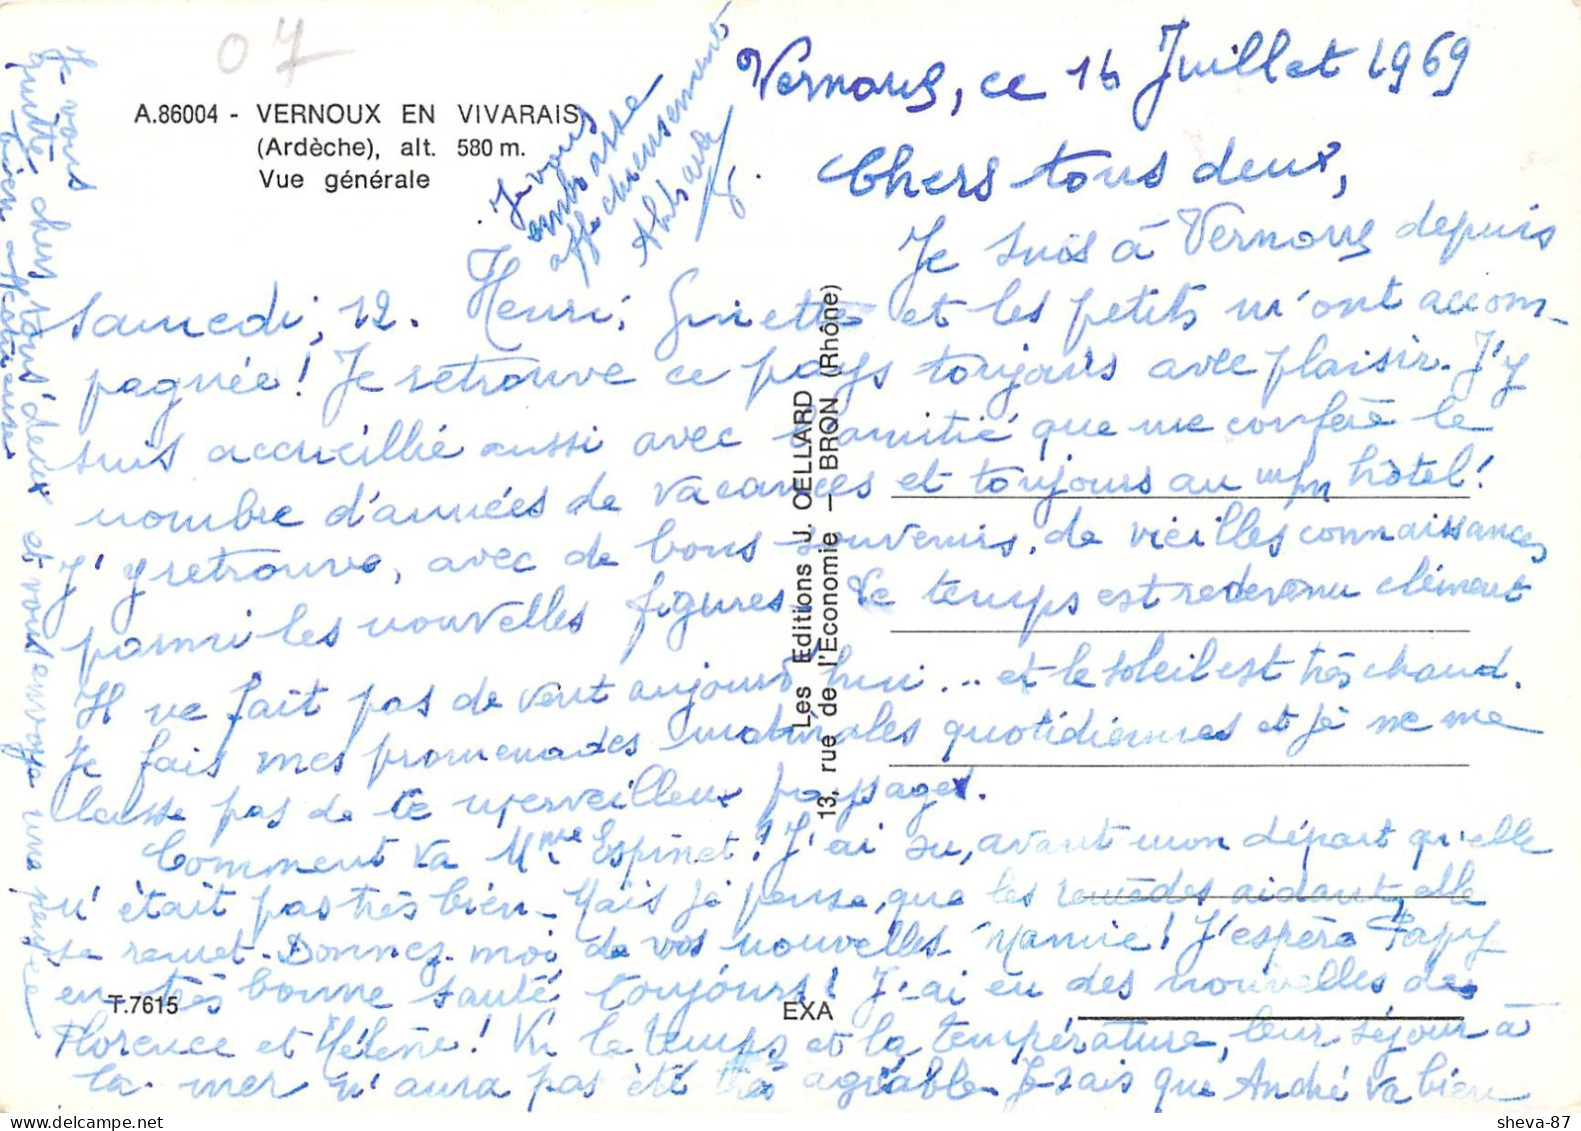 07
A.86004 - VERNOUX EN VIVARAIS
(Ardèche), alt. 580 m.
Vue générale
Vernoux, ce 16 Juillet 1969
Chers tous deux,
Je suis à Vernoux depuis
samedi, 12. Henri, Ginette et les petits m'ont accom-
pagnée! Je retrouve ce pays toujours avec plaisir. J'y
suis accueillie aussi avec l'amitié que me confère le
nombre d'années de vacances et toujours au hôtel!
J'y retrouve, avec de bons souvenirs, de vieilles connaissances
parmi les nouvelles figures. Le temps est redevenu clément
Il ne fait pas de vent aujourd'hui... et le soleil est très chaud.
Je fais mes promenades matinales quotidiennes et je ne me
lasse pas de ce merveilleux paysage.
Comment va Mme Espinet? J'ai su, avant mon départ qu'elle
n'était pas très bien. Mais je pense, que les remèdes aidant, elle
se remet. Donnez-moi de vos nouvelles Mamie! J'espère Papy
en très bonne santé toujours! J'ai eu des nouvelles de
Florence et Hélène! Vu le temps et la température, leur séjour à
la mer n'aura pas été très agréable. Je sais que André va bien
Je vous
quitte, chers tous deux et vous envoie une pensée
bien affectueuse
Je vous
embrasse
affectueusement
Les Editions J. OELLARD
13, rue de l'Economie — BRON (Rhône)
T.7615
EXA
sheva-87